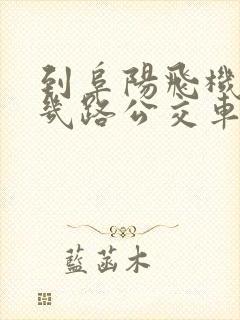 到阜陽飛機
幾路公交車
藍菡木